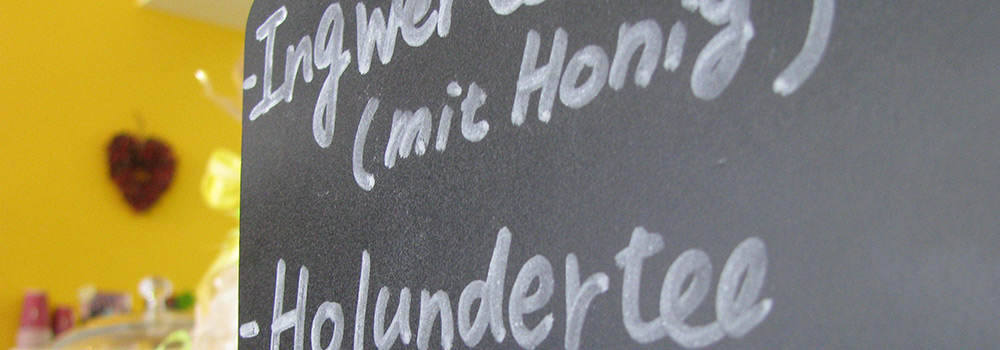 -Ingwertee
(mit Honig)
-Holundertee